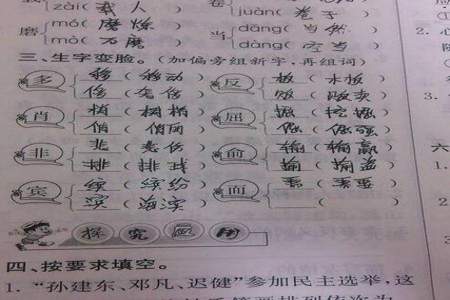 zài(载 人) juàn(卷子)
磨 mó(磨炼) 当 dāng(当然)
mò(石磨) dàng(空当)
三、生字变脸。(加偏旁组新字,再组词)
多 移(移动) 反 板(木板)
侈 贩(贩卖)
肖 梢(树梢) 屈 掘(挖掘)
俏 倔(倔强)
非 悲(悲伤) 俞 输(输赢)
排(排球)
宾 缤(缤纷) 而 需(需要)
滨(海滨) ( )
探究应用
四、按要求填空。
1. “孙建东、邓凡、迟健”参加民主选举,这
2. 心
3.
六
1.
2
3.